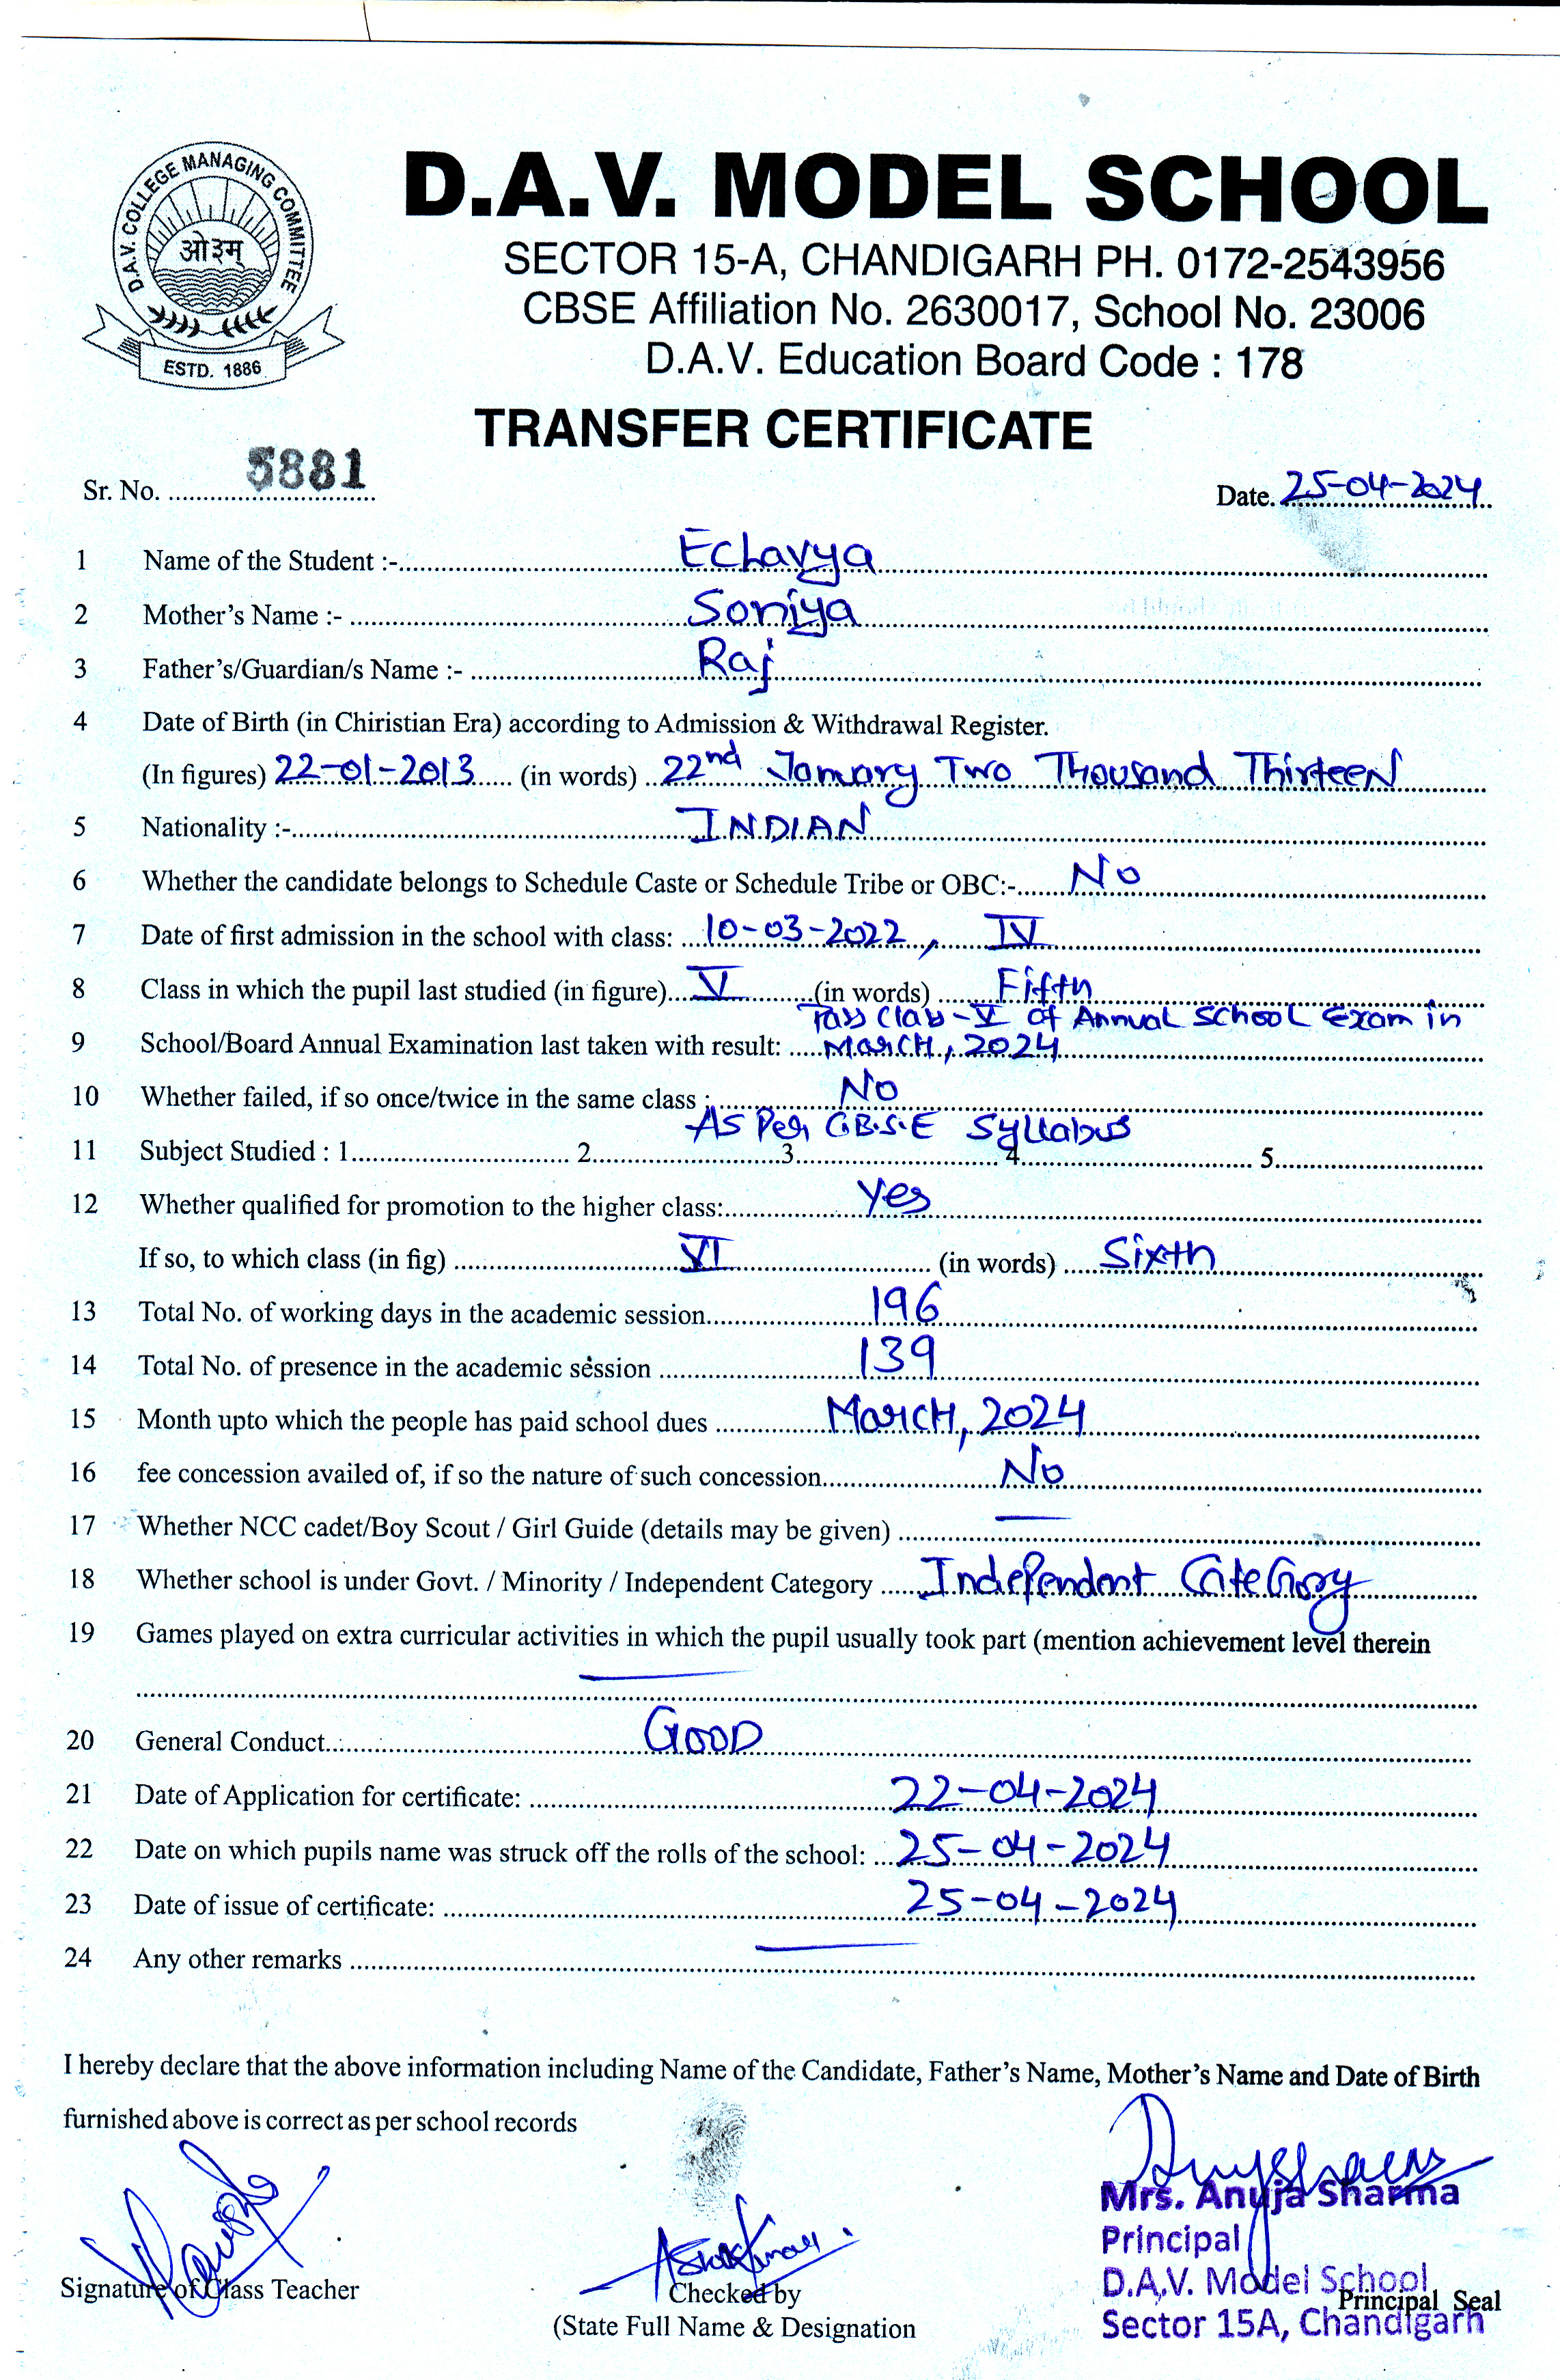 D.A.V. COLLEGE MANAGING COMMITTEE
ओ३म्
ESTD. 1886
D.A.V. MODEL SCHOOL
SECTOR 15-A, CHANDIGARH PH. 0172-2543956
CBSE Affiliation No. 2630017, School No. 23006
D.A.V. Education Board Code : 178
TRANSFER CERTIFICATE
Sr. No. 5881 Date. 25-04-2024
1 Name of the Student :- Eclavya
2 Mother's Name :- Soniya
3 Father's/Guardian/s Name :- Raj
4 Date of Birth (in Chiristian Era) according to Admission & Withdrawal Register.
(In figures) 22-01-2013 (in words) 22nd January Two Thousand Thirteen
5 Nationality :- INDIAN
6 Whether the candidate belongs to Schedule Caste or Schedule Tribe or OBC:- No
7 Date of first admission in the school with class: 10-03-2022, IV
8 Class in which the pupil last studied (in figure) V (in words) Fifth
Pass Class-V of Annual School Exam in
9 School/Board Annual Examination last taken with result: March, 2024
10 Whether failed, if so once/twice in the same class : No
As Per C.B.S.E Syllabus
11 Subject Studied : 1 2 3 4 5
12 Whether qualified for promotion to the higher class: Yes
If so, to which class (in fig) VI (in words) Sixth
13 Total No. of working days in the academic session 196
14 Total No. of presence in the academic session 139
15 Month upto which the people has paid school dues March, 2024
16 fee concession availed of, if so the nature of such concession No
17 Whether NCC cadet/Boy Scout / Girl Guide (details may be given) —
18 Whether school is under Govt. / Minority / Independent Category Independent Category
19 Games played on extra curricular activities in which the pupil usually took part (mention achievement level therein
—
20 General Conduct Good
21 Date of Application for certificate: 22-04-2024
22 Date on which pupils name was struck off the rolls of the school: 25-04-2024
23 Date of issue of certificate: 25-04-2024
24 Any other remarks —
I hereby declare that the above information including Name of the Candidate, Father's Name, Mother's Name and Date of Birth
furnished above is correct as per school records
Mrs. Anuja Sharma
Principal
D.A.V. Model School
Sector 15A, Chandigarh
Signature of Class Teacher
Checked by
(State Full Name & Designation
Principal Seal